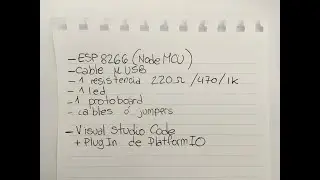 - ESP8266 (NodeMCU)
- cable μUSB
- 1 resistencia 220Ω /470/1k
- 1 led
- 1 protoboard
- cables ó jumpers
- Visual Studio Code
+ PlugIn de PlatformIO